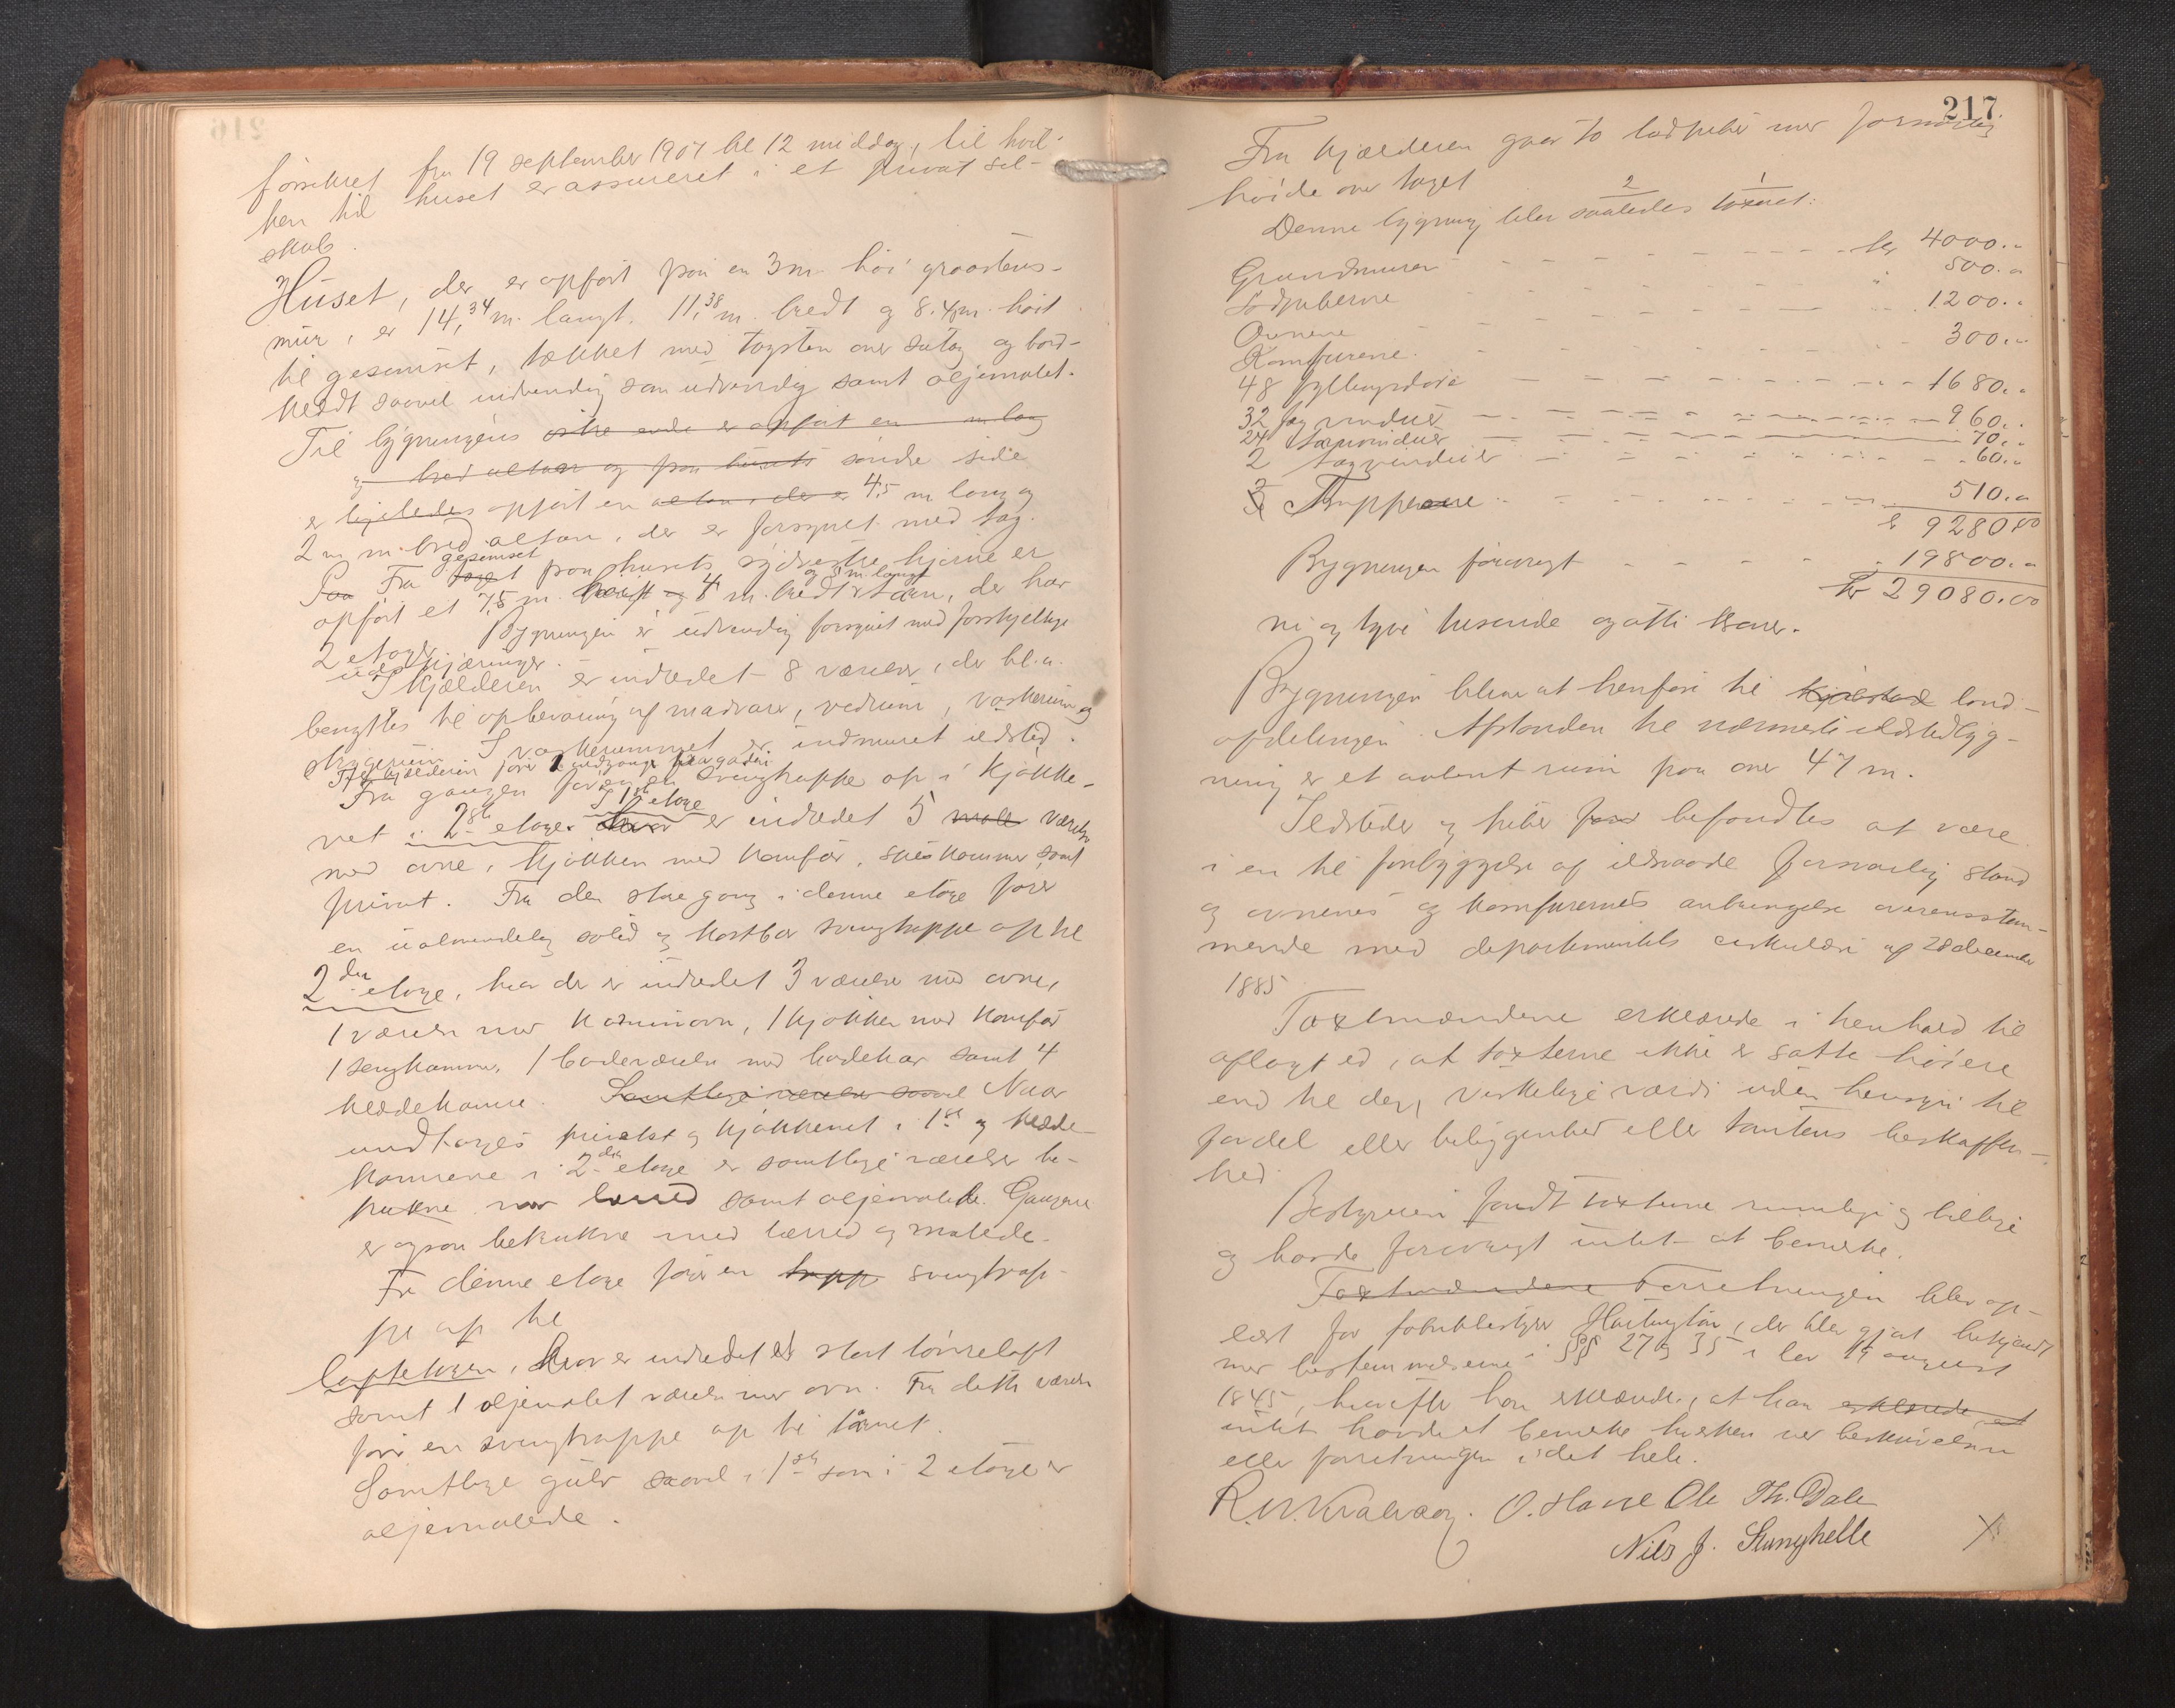 forsikret fra 19 september 1907 kl 12 middag, til hvil-
ken tid huset er assureret i et privat sel-
skab.
Huset, der er opført paa en 3 m. høi graastens-
mur, er 14,34 m. langt, 11,38 m. bredt og 8.4 m. høit
til gesimset, tækket med tagsten over sutag og bord-
klædt saavel indvendig som udvendig samt oljemalet.
Til bygningens østre ende er opført en m lang
og bred altan og paa husets søndre side
er ligeledes opført en altan, der er 4,5 m lang og
2 m. bred altan, der er forsynet med tag.
Paa Fra taget gesimset paa husets sydvestre hjørne er
opført et 7,5 m. høit og 4 m. bredt og 4 m. langt taarn, der har
2 etager. Bygningen er udvendig forsynet med forskjellige
udskjæringer.
I kjælderen er indredet 8 værelser, der bl.a.
benyttes til opbevaring af madvarer, vedrum, vaskerum og
strygerum. I vaskerummet er indmuret ildsted.
Til kjælderen fører 1 indgang fra gaden
Fra gangen fører en svingtrappe op i kjøkke-
net i 1ste etage. I 1ste etage hvor er indredet 5 male værelser
med ovne, kjøkken med komfur, spiskammer samt
privat. Fra den store gang i denne etage fører
en ualmindelig solid og kostbar svingtrappe op til
2den etage, hvor der er indredet 3 værelser med ovne,
1 værelse med kaminovn, 1 kjøkken med komfur
1 sengkammer, 1 badeværelse med badekar samt 4
klædekamre. Samtlige værelser saavel Naar
undtages privatet og kjøkkenet i 1ste og klæde-
kamrene i 2den etage er samtlige værelser be-
trukne med lærred samt oljemalede. Gangene
er ogsaa betrukne med lærred og malede.
Fra denne etage fører en trapp svingtrap-
pe op til
loftetagen, hvor er indredet et stort tørreloft
samt 1 oljemalet værelse med ovn. Fra dette værelse
fører en svingtrappe op til tårnet.
Samtlige gulv saavel i 1ste som i 2 etage er
oljemalede.
217.
Fra kjælderen gaar to ladpiber med forsvarlig
høide over taget
2 1
Denne bygning blev saaledes taxeret:
Grundmuren kr 4000.-
Ladpiberne " 500.-
Ovnene 1200.-
Komfurene 300.-
48 fyllingsdøre 1680.-
32 fag vinduer 960.-
24 taarnvinduer 70.-
2 tagvinduer 60.-
3 Trapperne 510.-
kr 9280.00
Bygningen forøvrigt 19800.-
kr 29080.00
ni og tyve tusende og otti kroner.
Bygningen bliver at henføre til kjøbstad land-
afdelingen. Afstanden til nærmeste ildstedbyg-
ning er et aabent rum paa over 47 m.
Ildsteder og piber for befandtes at være
i en til forebyggelse af ildsvaade forsvarlig stand
og ovnenes og komfurernes anbringelse overensstem-
mende med departementets cirkulære af 28 december
1885
Taxtmændene erklærede i henhold til
aflagt ed, at taxterne ikke er satte høiere
end til den virkelige værdi uden hensyn til
fordel eller beliggenhed eller tomtens beskaffen-
hed.
Bestyreren fandt taxterne rimelige og billige
og havde forøvrigt intet at bemerke.
Taxtmændene Forretningen blev op-
læst for fabrikbestyrer Hartington, der blev gjort bekjendt
med bestemmelserne i §§ 27 og 35 i lov 19 august
1845, hvorefter han erklærede, at han erklærede, at
intet havde at bemerke hverken ved beskrivelsen
eller forretningen i det hele.
R. N. Kvalvaag. O. Havre Ole Th. Dale
Nils J. Stanghelle X